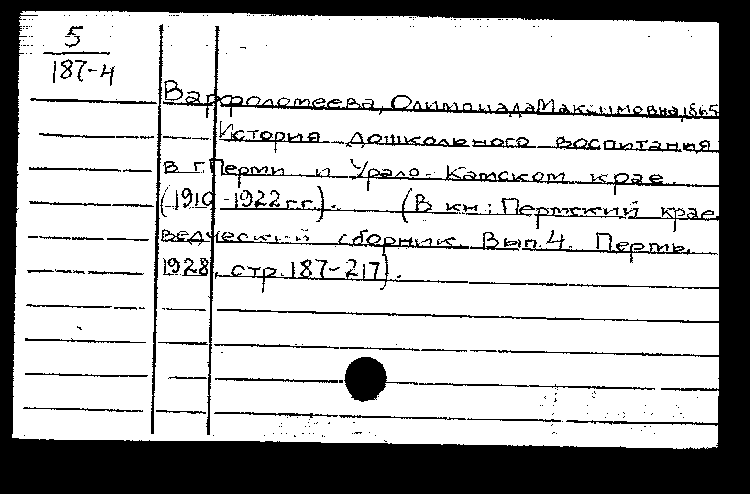 5
187-4
Варфоломеева, Олимпиада Максимовна, 1865
История дошкольного воспитания
в г. Перми и Урало-Камском крае.
(1910-1922 г.г.). (В кн: Пермский крае
ведческий сборник. Вып. 4. Пермь.
1928, стр. 187-217).